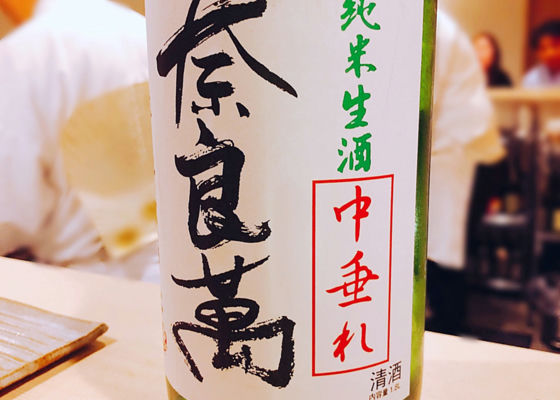 純米生酒
中垂れ
奈良萬
清酒
内容量 1.8L